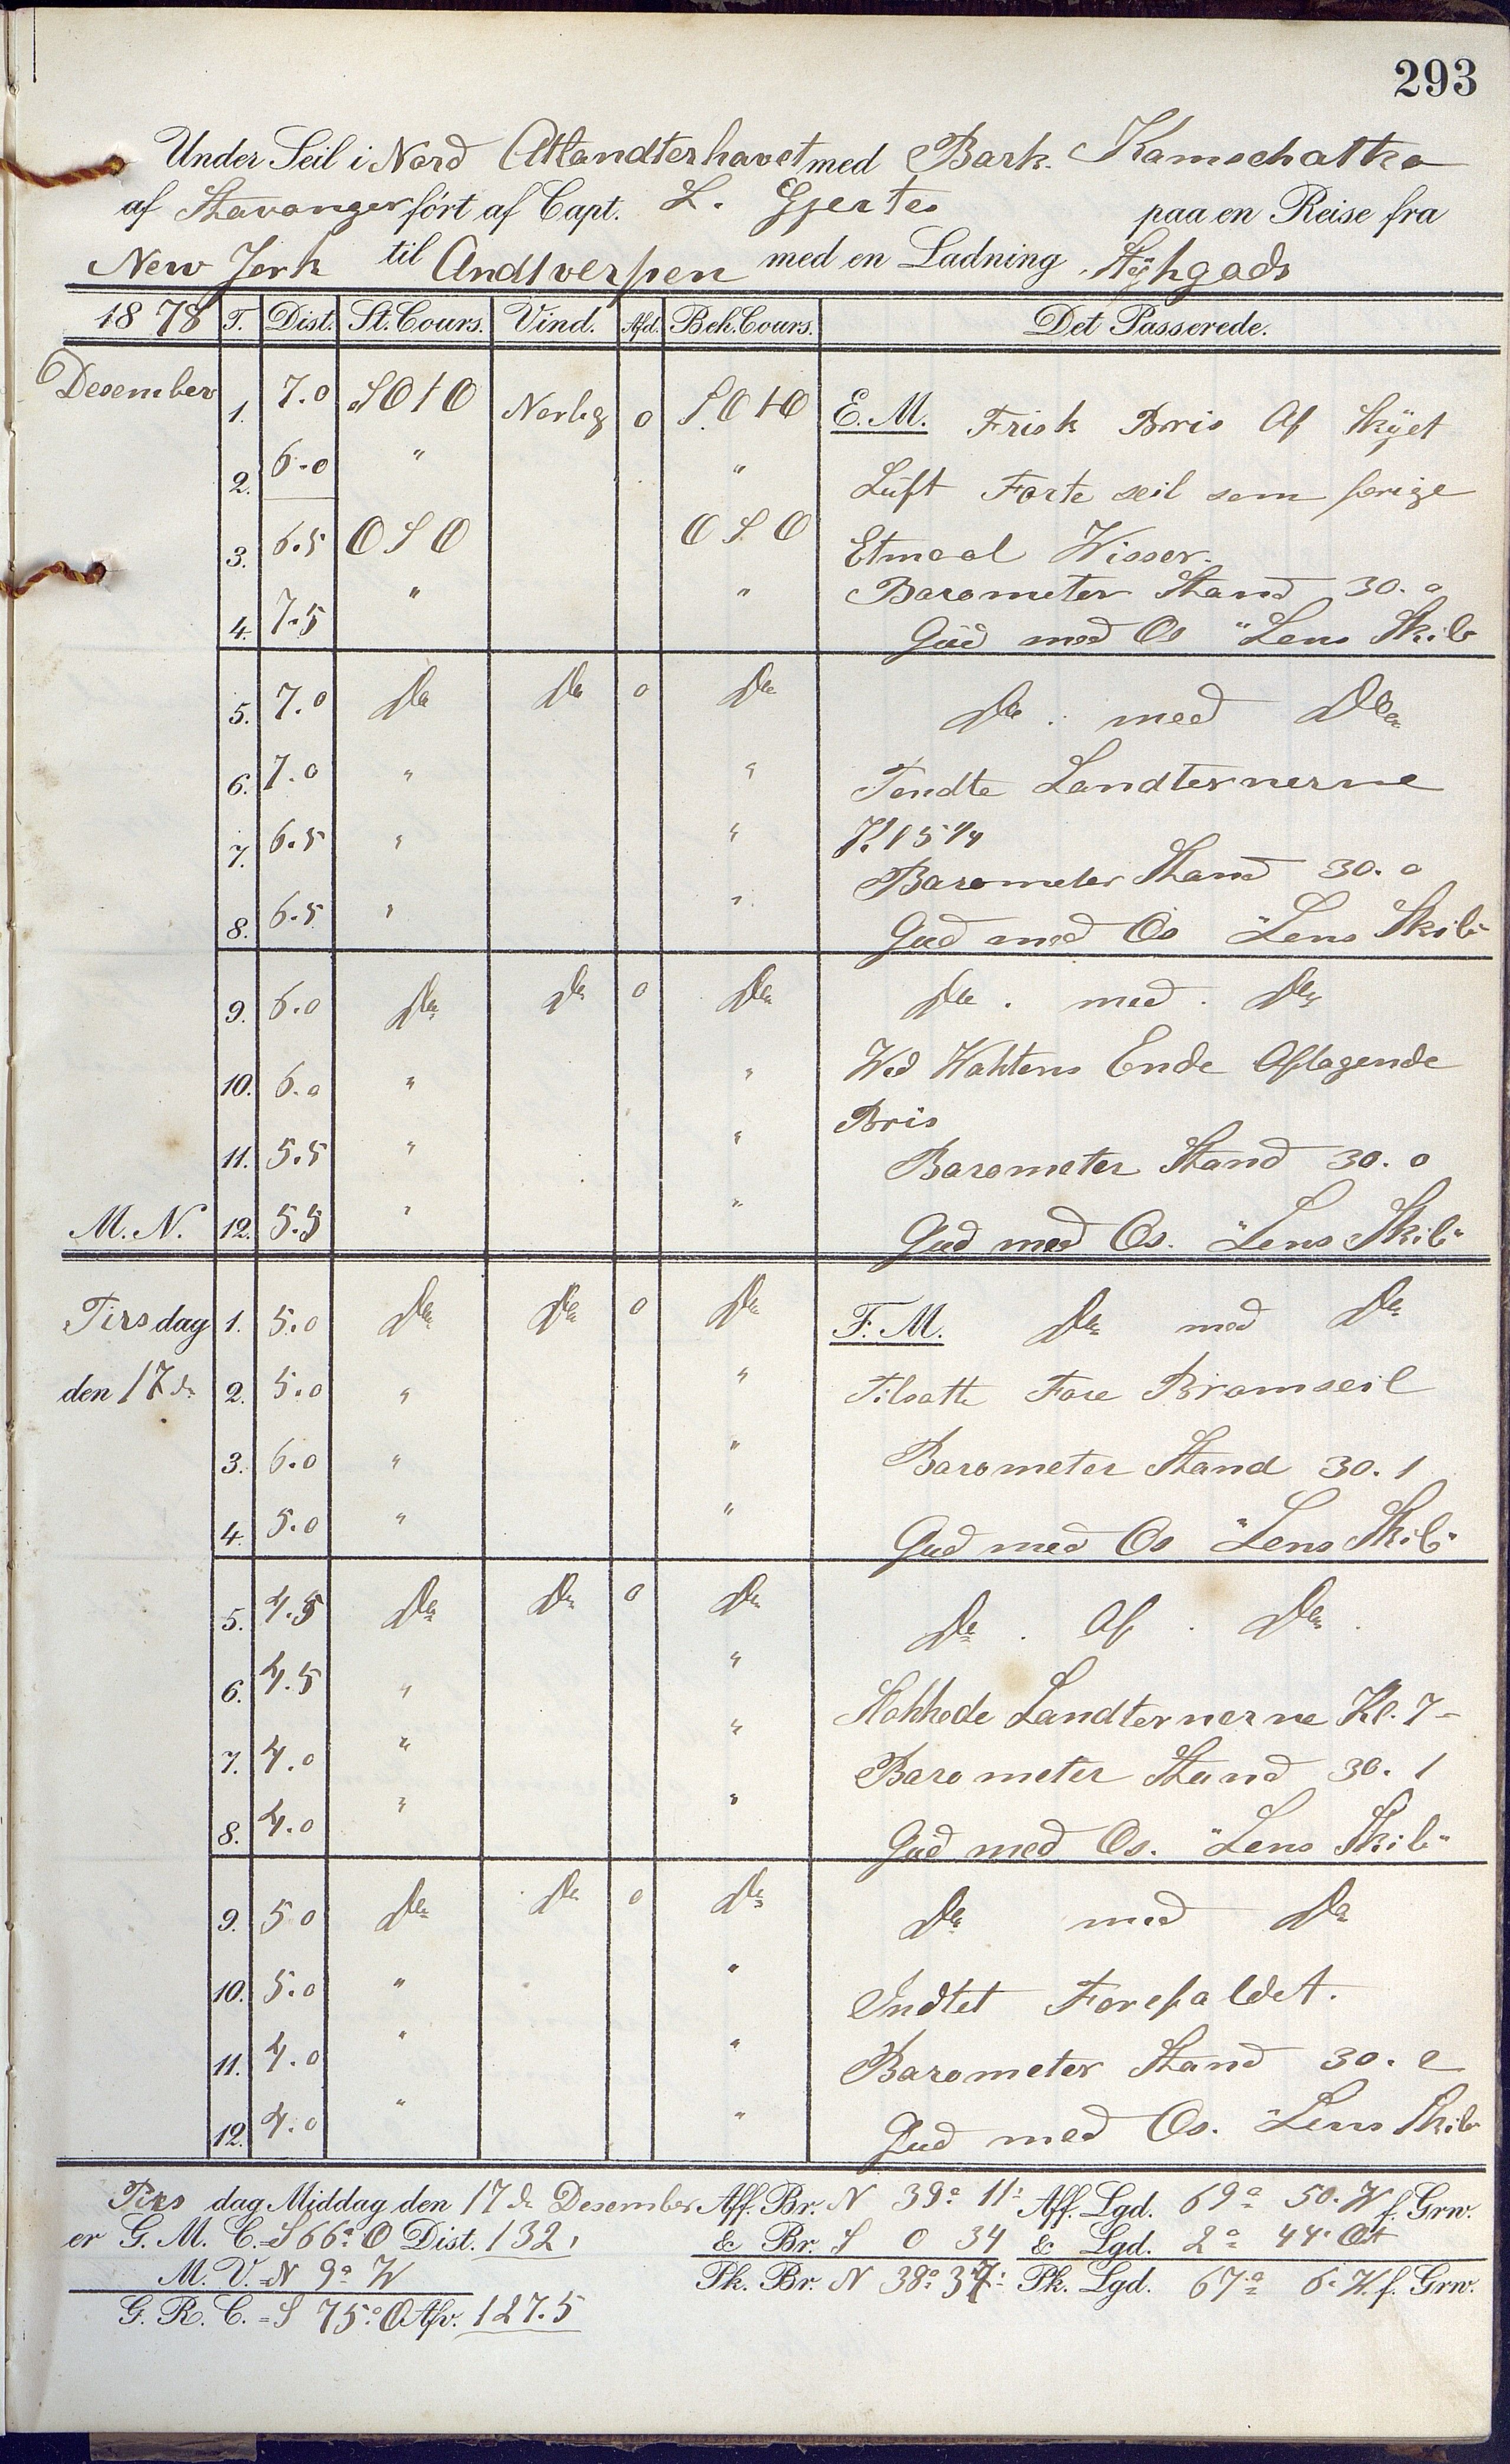 293
Under Seil i Nord Atlandterhavet med Bark. Kamschatka
af Stavanger fört af Capt. L. Gjertes paa en Reise fra
New Jork til Andtverpen med en Ladning Stÿkgods
1878 T. Dist. St. Cours. Vind. Afd. Beh. Cours. Det Passerede.
Desember 1. 7.0 SOtO Norlig o SOtO E.M. Frisk Bris Af Skÿet
2. 6.0 " " Luft Forte seil som forige
3. 6.5 OSO OSO Etmaal Wisser.
Barometer Stand 30.0
4. 7.5 " " Gud med Os "Lens Skib
5. 7.0 Do Do o Do Do. med Do
6. 7.0 " " Tendte Landternerne
7. 6.5 " " Kl 5 1/4
Barometer Stand 30.0
8. 6.5 " " Gud med Os "Lens Skib"
9. 6.0 Do Do o Do Do. med. Do
10. 6.0 " " Wed Wahtens Ende Aftagende
11. 5.5 " " Bris
Barometer Stand 30.0
M.N. 12. 5.5 " " Gud med Os. "Lens Skib"
Tirsdag 1. 5.0 Do Do o Do F.M. Do med Do
den 17de 2. 5.0 " " Tilsatte Fore Bramseil
3. 6.0 " " Barometer Stand 30.1
4. 5.0 " " Gud med Os "Lens Skib"
5. 4.5 Do Do o Do Do. Af. Do.
6. 4.5 " " Slokkede Landternerne Kl. 7-
7. 4.0 " " Barometer Stand 30.1
8. 4.0 " " Gud med Os. "Lens Skib"
9. 5.0 Do Do o Do Do med Do
10. 5.0 " " Indtet Forefaldet.
11. 4.0 " " Barometer Stand 30.2
12. 4.0 " " Gud med Os. "Lens Skib
Tirsdag Middag den 17de Desember Aff. Br. N 39° 11' Aff. Lgd. 69° 50' W f. Grw.
er G. M. C. = S 66° O Dist. 132' & Br. S 0 34 & Lgd. 2° 44' Ost
M. V. = N 9° W Pk. Br. N 38° 37' Pk. Lgd. 67° 6' W. f. Grw.
G. R. C. = S 75° O Afv. 127.5